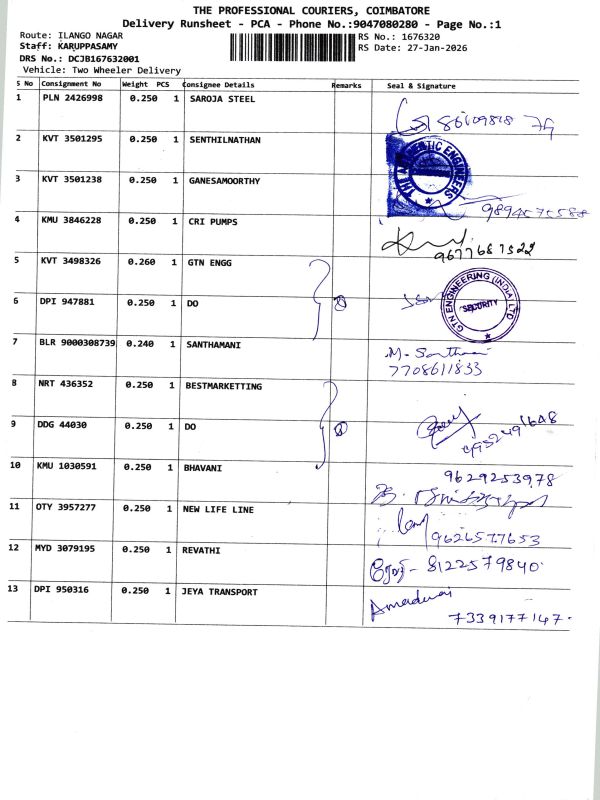 THE PROFESSIONAL COURIERS, COIMBATORE
Delivery Runsheet - PCA - Phone No.:9047080280 - Page No.:1
Route: ILANGO NAGAR
RS No.: 1676320
Staff: KARUPPASAMY
RS Date: 27-Jan-2026
DRS No.: DCJB167632001
Vehicle: Two Wheeler Delivery
S No Consignment No Weight PCS Consignee Details Remarks Seal & Signature
1 PLN 2426998 0.250 1 SAROJA STEEL
2 KVT 3501295 0.250 1 SENTHILNATHAN
THE AUTHENTIC ENGINEERS
3 KVT 3501238 0.250 1 GANESAMOORTHY
9894575588
4 KMU 3846228 0.250 1 CRI PUMPS
9677667522
5 KVT 3498326 0.260 1 GTN ENGG
6 DPI 947881 0.250 1 DO 2
GTN ENGINEERING (INDIA) LTD
SECURITY
7 BLR 9000308739 0.240 1 SANTHAMANI
M. Santhamani
7708611833
8 NRT 436352 0.250 1 BESTMARKETTING
9 DDG 44030 0.250 1 DO 2
10 KMU 1030591 0.250 1 BHAVANI
9629253978
11 OTY 3957277 0.250 1 NEW LIFE LINE
9626577653
12 MYD 3079195 0.250 1 REVATHI
8122579840
13 DPI 950316 0.250 1 JEYA TRANSPORT
7339177147